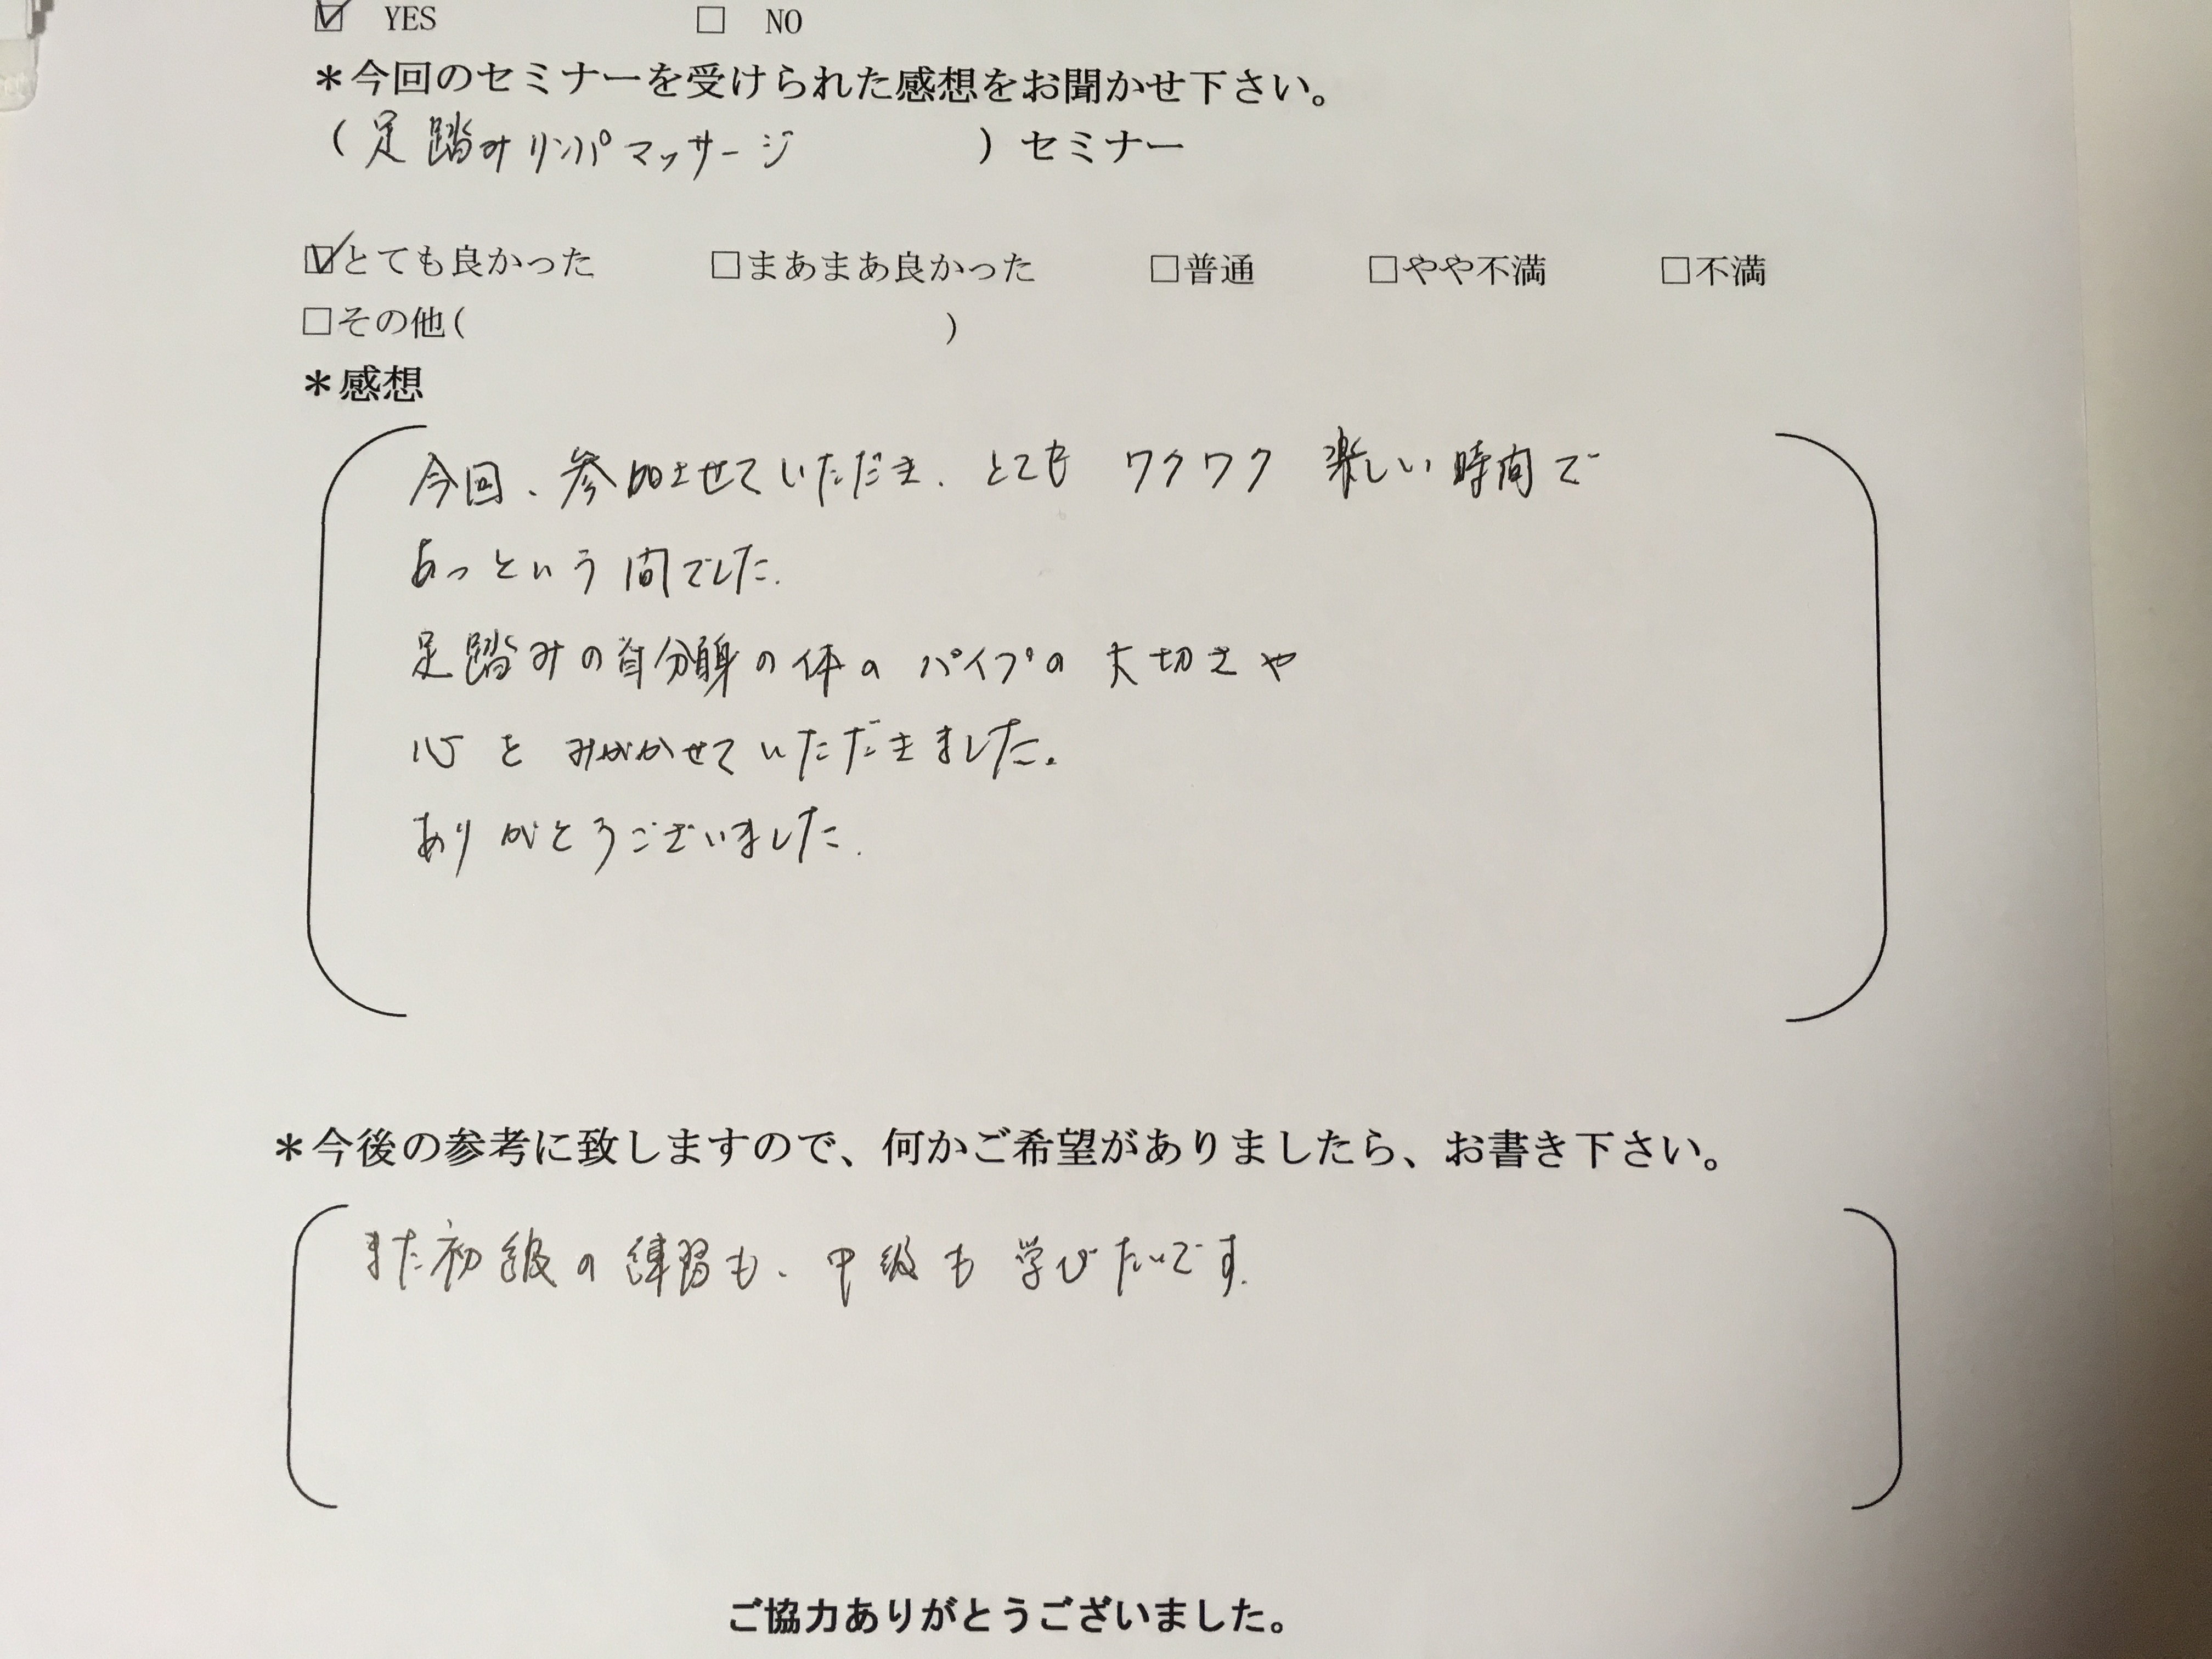 ☑ YES □ NO
＊今回のセミナーを受けられた感想をお聞かせ下さい。
（足踏みリンパマッサージ ）セミナー
☑とても良かった □まあまあ良かった □普通 □やや不満 □不満
□その他( )
＊感想
今回、参加させていただき、とても ワクワク 楽しい時間で
あっという間でした。
足踏みの自分自身の体の パイプの 大切さや
心を みがかせていただきました。
ありがとうございました。
＊今後の参考に致しますので、何かご希望がありましたら、お書き下さい。
また初級の練習も、中級も学びたいです。
ご協力ありがとうございました。